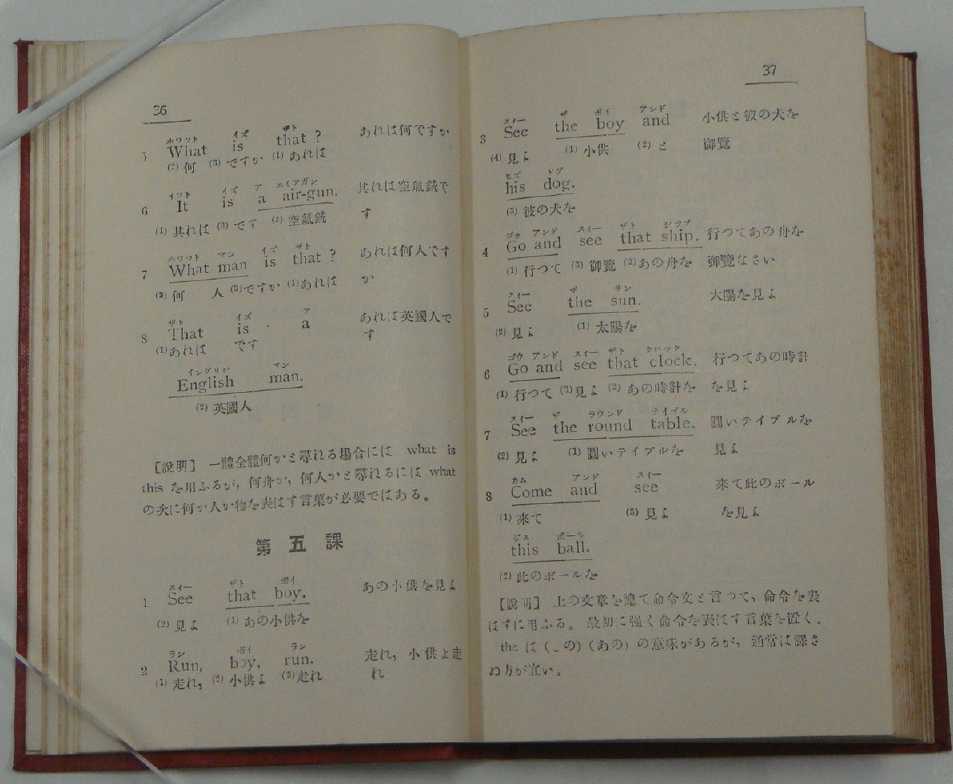 36
ホワット イズ ザト
5 What is that ? あれは何ですか
(2) 何 (3) ですか (1) あれは
イット イズ ア エイアガン
6 It is a air-gun. 其れは空氣銃で
(1) 其れは (3) です (2) 空氣銃 す
ホワット マン イズ ザト
7 What man is that ? あれは何人です
(2) 何 人 (3)ですか (1)あれは か
ザト イズ ア
8 That is a あれは英國人で
(1)あれは です す
イングリシ マン
English man.
(2) 英國人
[說明] 一體全體何かと尋れる場合には what is
this を用ふるが, 何舟か, 何人かと尋れるには what
の次に何か人か物を表はす言葉が必要ではある。
第五課
スイー ザト ボイ
1 See that boy. あの小供を見よ
(2) 見よ (1) あの小供を
ラン ボイ ラン
2 Run, boy, run. 走れ, 小供よ走
(1) 走れ, (2) 小供よ (3)走れ れ
37
スイー ザ ボイ アンド
3 See the boy and 小供と彼の犬を
(4) 見よ (1) 小供 (2) と 御覽
ヒズ ドグ
his dog.
(3) 彼の犬を
ゴウ アンド スイー ザト シツプ
4 Go and see that ship. 行つてあの舟を
(1) 行つて (3) 御覽 (2)あの舟を 御覽なさい
スイー ザ サン
5 See the sun. 太陽を見よ
(2) 見よ (1) 太陽を
ゴウ アンド スイー ザト クロツク
6 Go and see that clock. 行つてあの時計
(1) 行つて (3)見よ (2) あの時計を を見よ
スイー ザ ラウンド テイブル
7 See the round table. 圓いテイブルを
(2) 見よ (1) 圓いテイブルを 見よ
カム アンド スイー
8 Come and see 來て此のボール
(1) 來て (3) 見よ を見よ
ジス ボール
this ball.
(2) 此のボールを
[說明] 上の文章を總て命令文と言つて、命令を表
はすに用ふる。最初に強く命令を表はす言葉を置く。
the は (この) (あの) の意味があるが, 通常は譯さ
ぬ方が宜い。